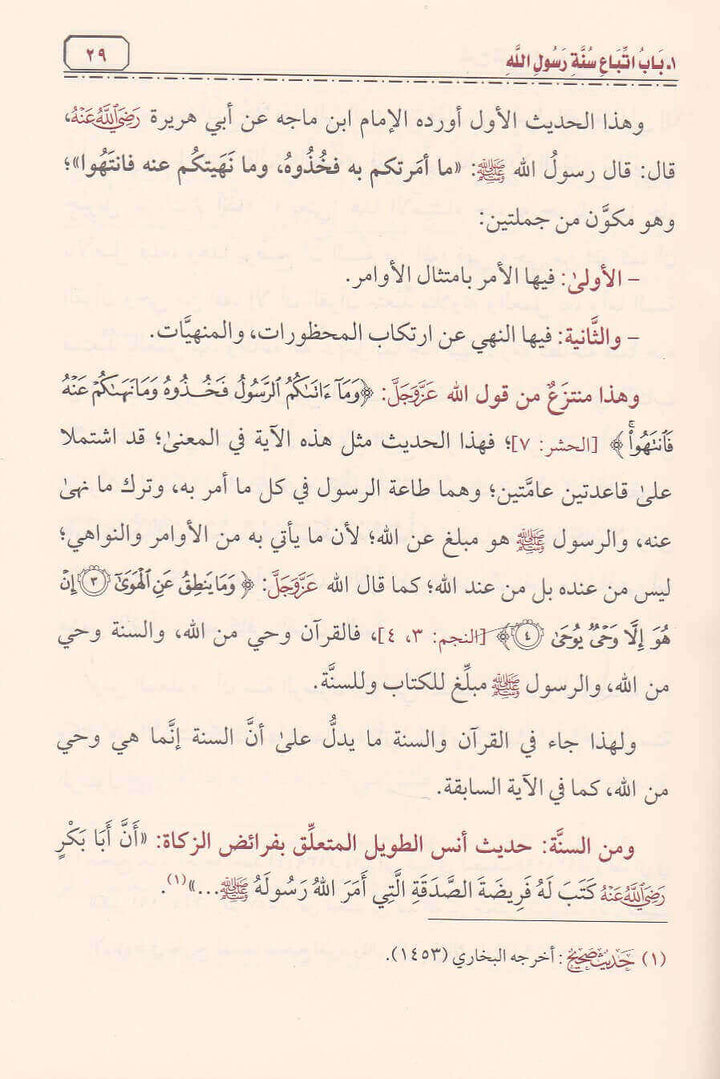 ١. بَابُ اتِّبَاعِ سُنَّةِ رَسُولِ اللَّهِ
٢٩
وهذا الحديث الأول أورده الإمام ابن ماجه عن أبي هريرة رَضِيَ اللَّهُ عَنْهُ،
قال: قال رسولُ الله ﷺ: «ما أمَرتكم به فخُذُوهُ، وما نَهَيتكُم عنه فانتَهُوا»؛
وهو مكوَّن من جملتين:
– الأولىٰ: فيها الأمر بامتثال الأوامر.
– والثَّانية: فيها النهي عن ارتكاب المحظورات، والمنهيَّات.
وهذا منتزَعٌ من قول الله عَزَّوَجَلَّ: ﴿وَمَآ ءَاتَىٰكُمُ ٱلرَّسُولُ فَخُذُوهُ وَمَا نَهَىٰكُمْ عَنْهُ
فَٱنتَهُوا۟ۚ﴾ [الحشر: ٧]؛ فهذا الحديث مثل هذه الآية في المعنىٰ؛ قد اشتملا
علىٰ قاعدتين عامَّتين؛ وهما طاعة الرسول في كل ما أمر به، وترك ما نهىٰ
عنه، والرسول ﷺ هو مبلغ عن الله؛ لأن ما يأتي به من الأوامر والنواهي؛
ليس من عنده بل من عند الله؛ كما قال الله عَزَّوَجَلَّ: ﴿وَمَا يَنطِقُ عَنِ ٱلْهَوَىٰٓ ٣ إِنْ
هُوَ إِلَّا وَحْىٌ يُوحَىٰ ٤﴾ [النجم: ٣، ٤]، فالقرآن وحي من الله، والسنة وحي
من الله، والرسول ﷺ مبلِّغ للكتاب وللسنَّة.
ولهذا جاء في القرآن والسنة ما يدلُّ علىٰ أنَّ السنة إنَّما هي وحي
من الله، كما في الآية السابقة.
ومن السنَّة: حديث أنس الطويل المتعلِّق بفرائض الزكاة: «أَنَّ أَبَا بَكْرٍ
رَضِيَ اللَّهُ عَنْهُ كَتَبَ لَهُ فَرِيضَةَ الصَّدَقَةِ الَّتِي أَمَرَ اللهُ رَسُولَهُ ﷺ...»(١).
(١) حَدِيثٌ صَحِيحٌ: أخرجه البخاري (١٤٥٣).